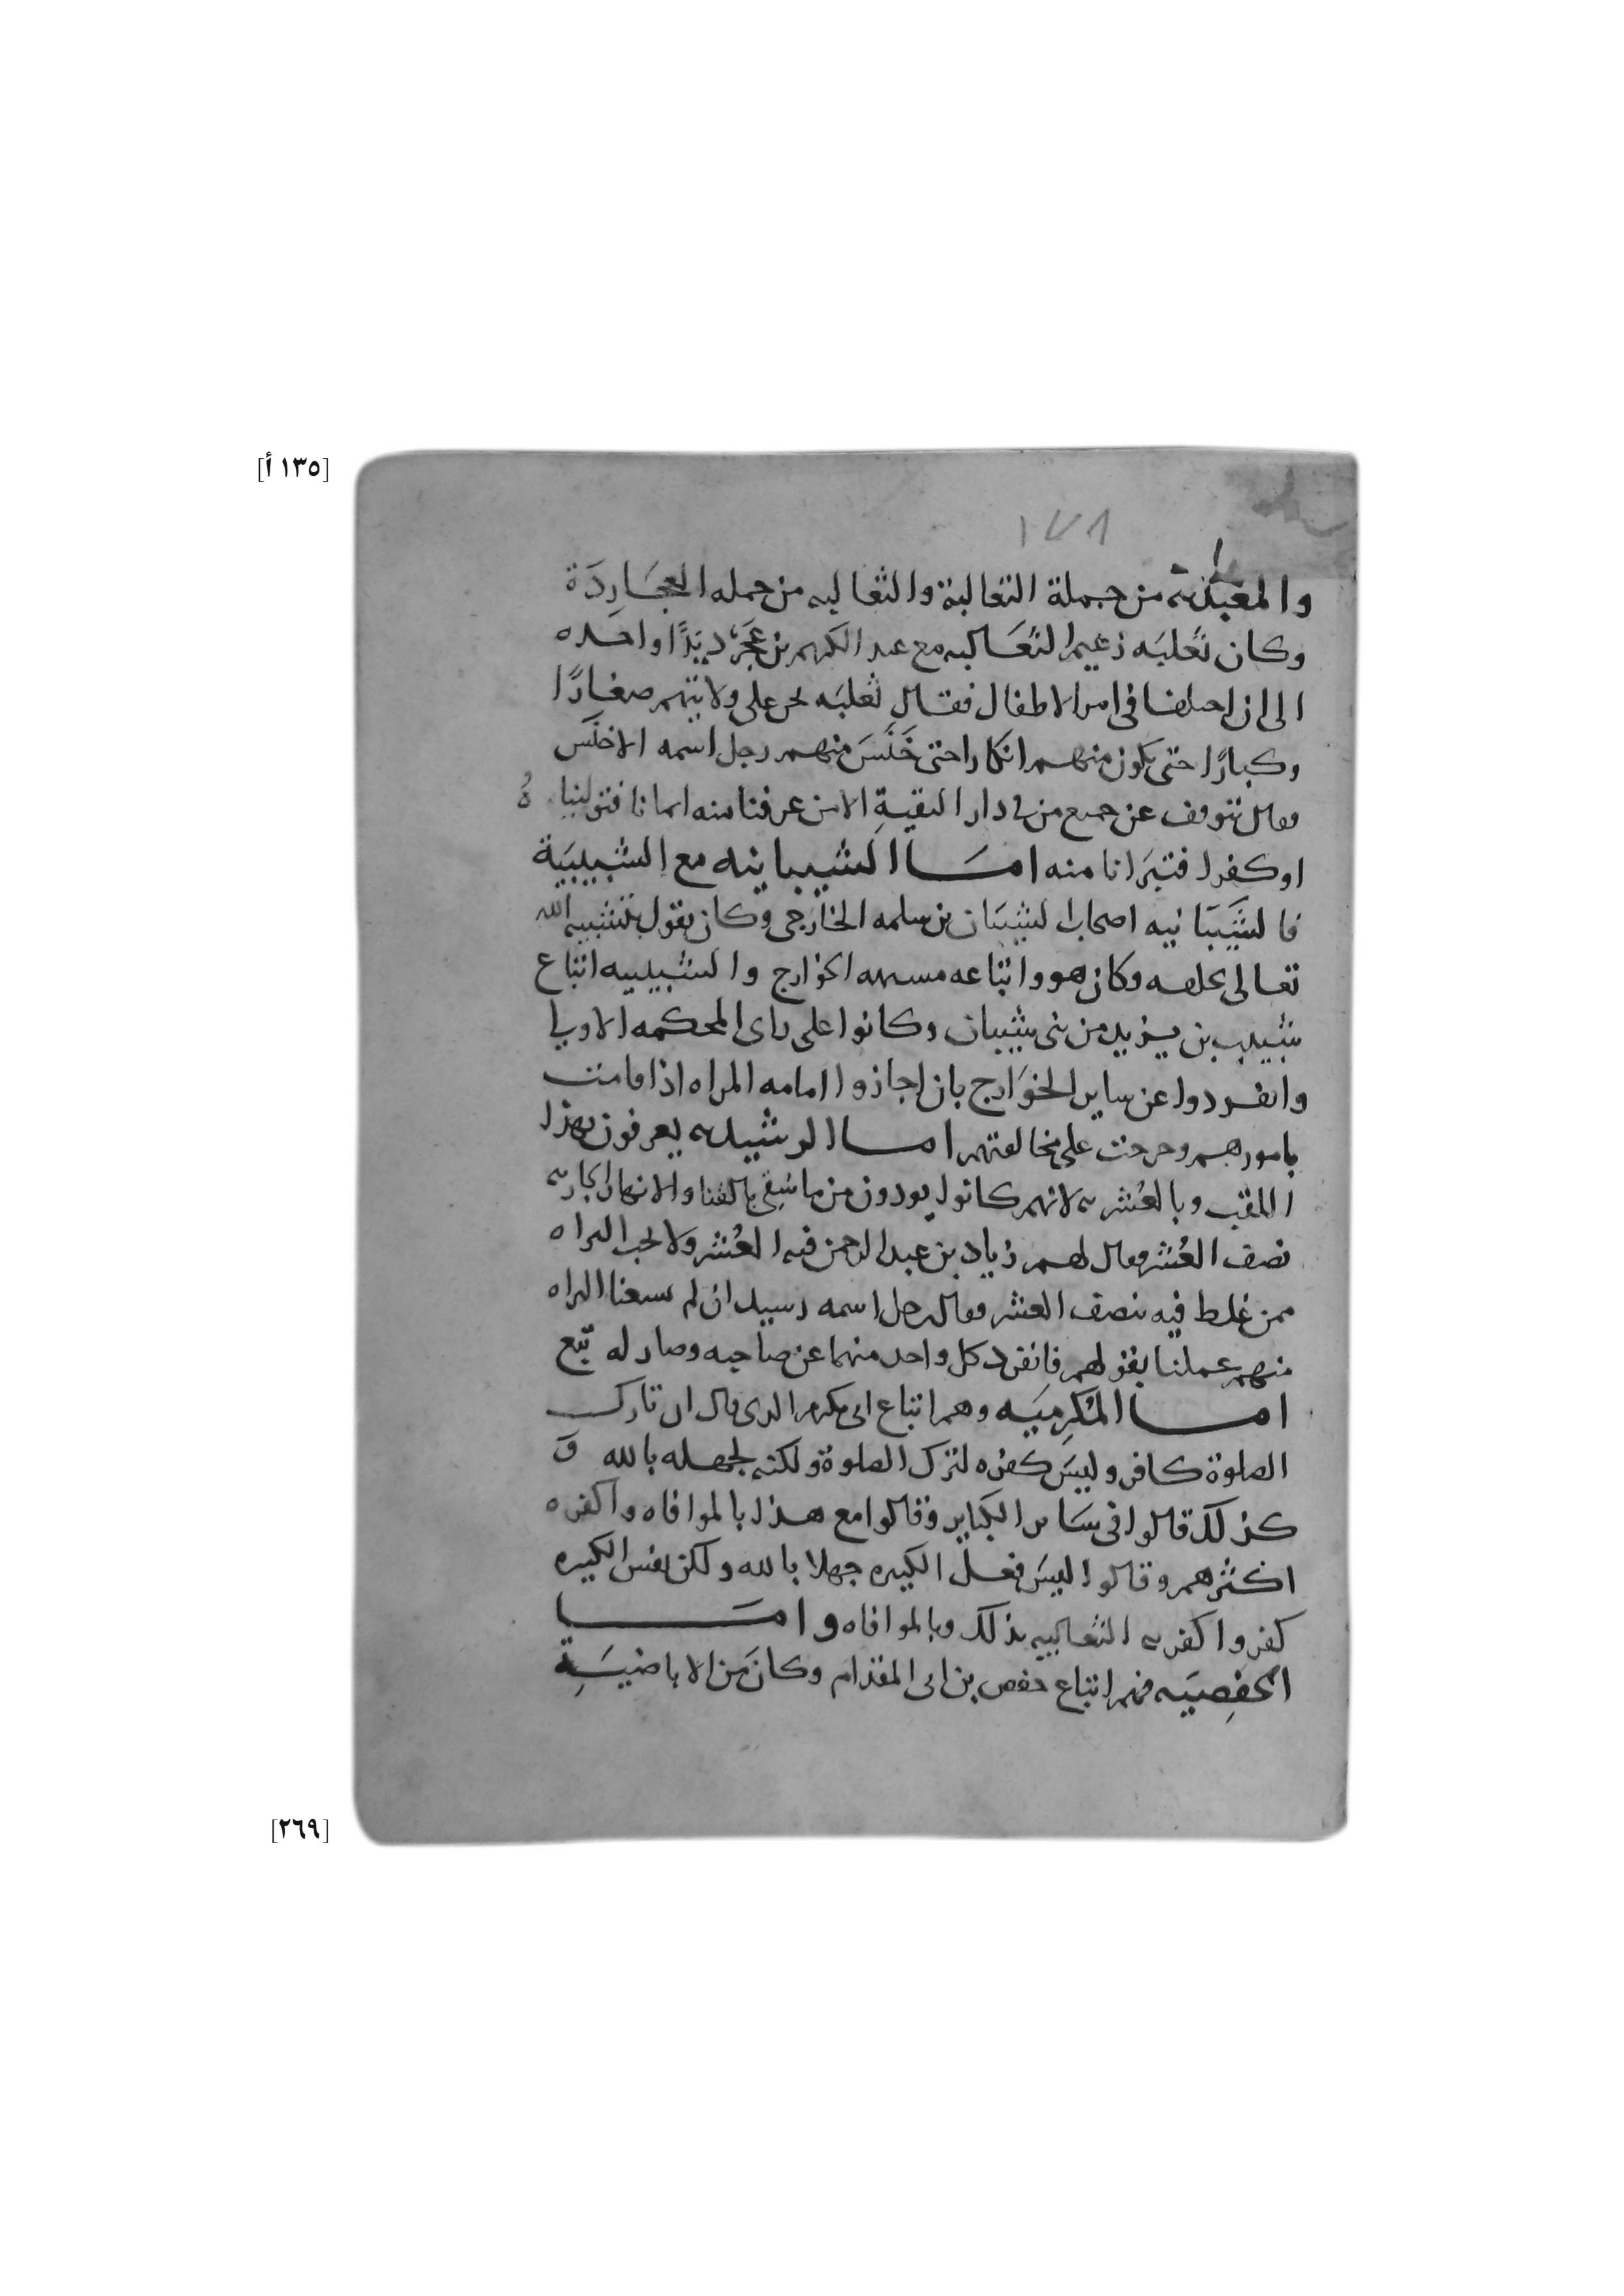 [١٣٥ أ]
١٧٨
والمعبدية من جملة الثعالبة والثعالبه من جمله العجَارِدَة
وكان ثعلبَه زعيم الثعَالبه مع عبد الكريم بن عَجَرّد يَدًا واحَده
الى ان اختلفا فى امر الاطفال فقال ثعلبَه نحن على ولايتهم صغارًا
وكبارًا حتى يكون منهم انكار حتى خَنَسَ منهم رجل اسمه الاخنَس
وقال نتوقف عن جميع من فى دار التقيةِ الا من عرفنا منه ايمانا فتولينا هُ
او كفرا فتبرَانا منه امَـــا الشيبانيه مع الشبيبَية
فالشَيبَانيه اصحاب لشيبَان بن سلمه الخارجى وكان يقول بتشبيه الله
تعالى بخلقه وكان هو واتباعه مشبهه الخوارج والشبيبيه اتباع
شبيب بن يزيد من بنى شيبان وكانوا على راى المحكمه الاولى
وانفردوا عن ساير الخوَارج بان اجازوا امامه المراه اذا قامت
بامورهم وخرجت على مخالفتهم امـــا الرشيديه يعرفون بهذا
اللقب وبالعُشريه لانهم كانوا يودون من ما سُقِى بالقنا والانهار الجاريه
نصف العُشر وقال لهم زياد بن عبد الرحمن فيه العُشر ولا تجب البراه
ممن غلط فيه بنصف العشر وقال رجل اسمه رسيد ان لم يسعنا البراه
منهم عملنا بقولهم فانفرد كل واحد منهما عن صاحبه وصار له تَبع
امـــا المُكرِميَه وهم اتباع ابى مكرم الذى قال ان تارك
الصلوة كافر وليسَ كفره لترك الصلوة ولكنه لجهله بالله وَ
كذلك قالوا فى سَاير الكبَاير وقالوا مع هذا بالموافاه واكفره
اكثرهم وقالوا ليسَ فعل الكبيره جهلا بالله ولكن نفس الكبيره
كفر واكفريه الثعالبيه بذلك وبالموافاه وامَـــا
الحَفصِيَه فهم اتباع حفص بن ابى المقدام وكانَ من الاباضيَةِ
[٢٦٩]